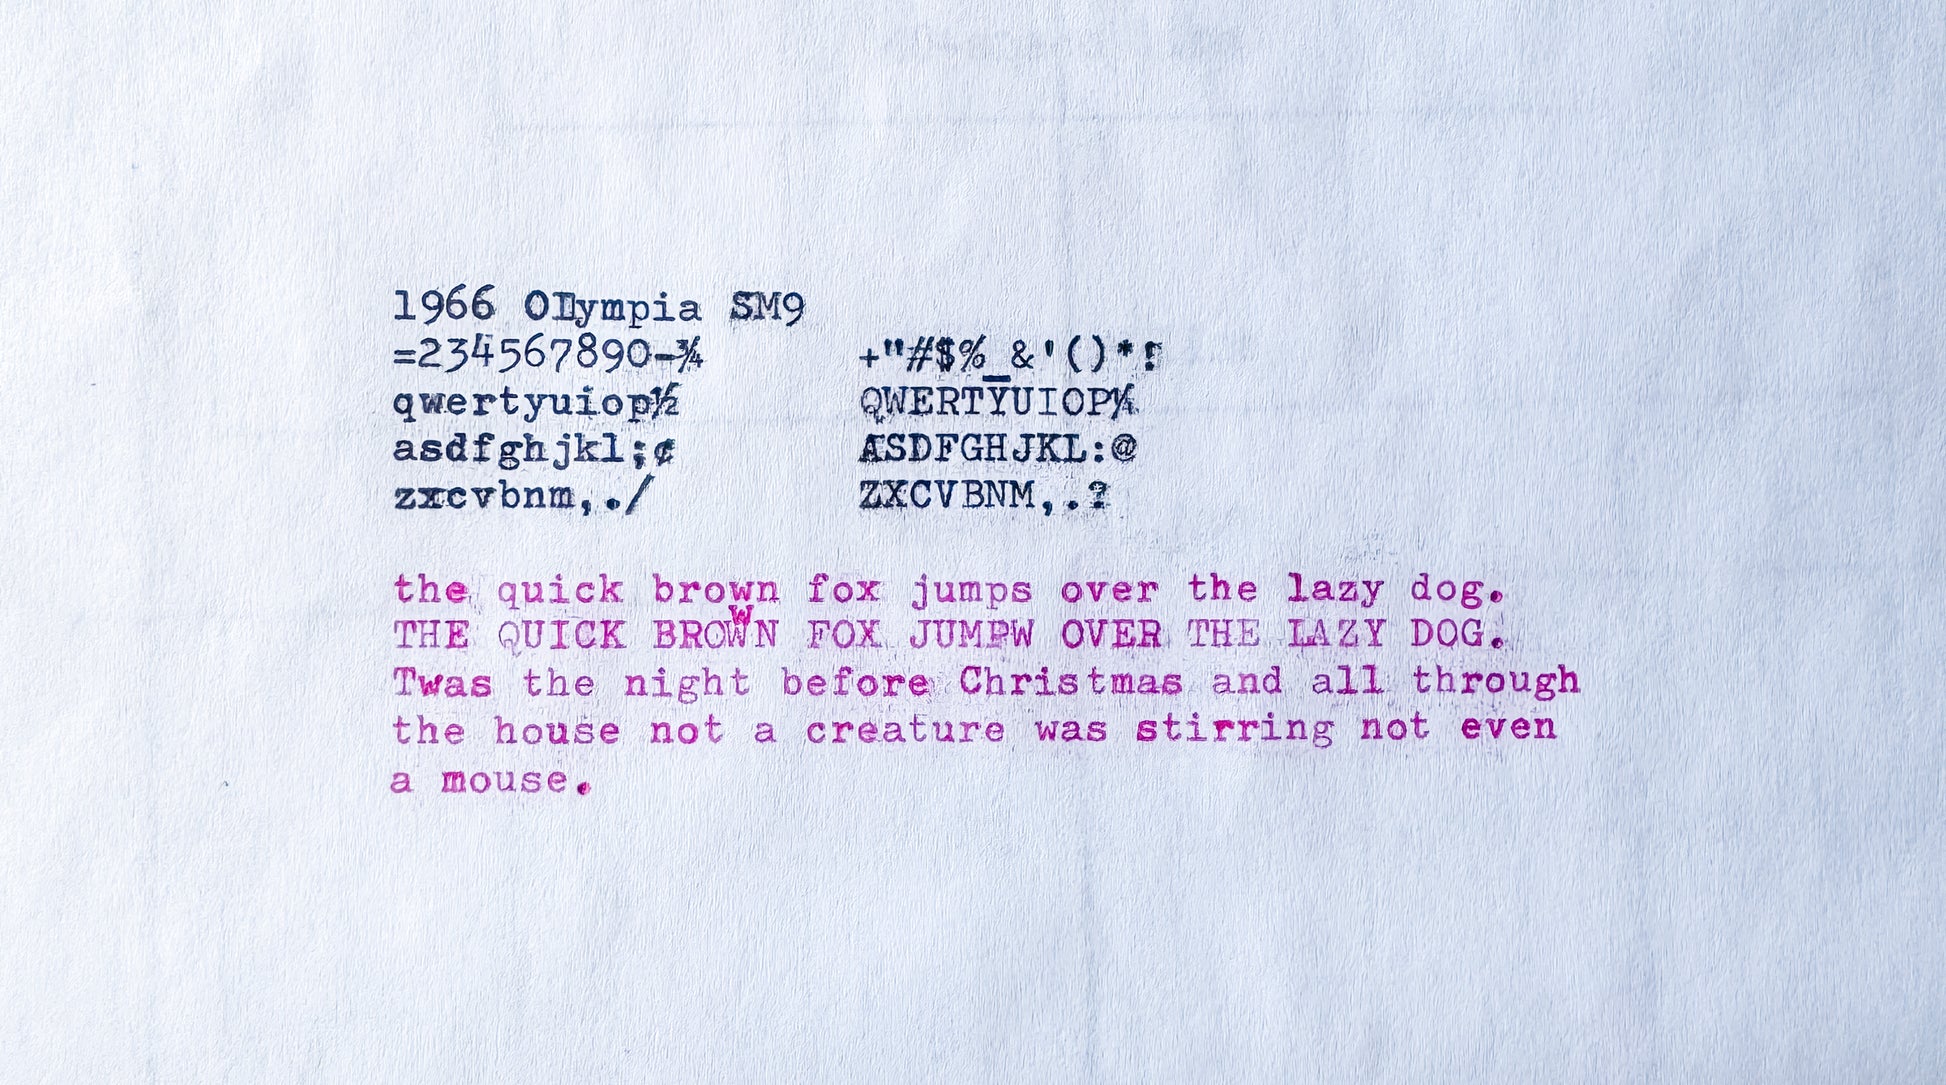 1966 Olympia SM9
=234567890-¾ +"#$%_&'()*!
qwertyuiop½ QWERTYUIOP¼
asdfghjkl;¢ ASDFGHJKL:@
zxcvbnm,./ ZXCVBNM,.?
the quick brown fox jumps over the lazy dog.
THE QUICK BROWN FOX JUMPW OVER THE LAZY DOG.
Twas the night before Christmas and all through
the house not a creature was stirring not even
a mouse.